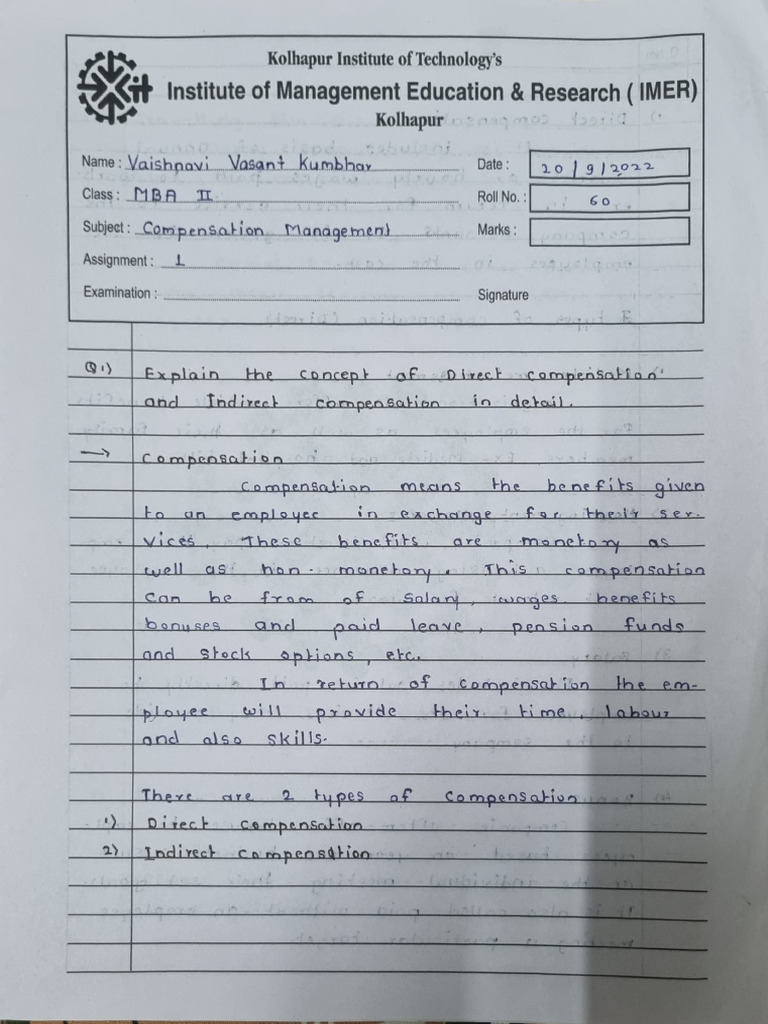 Kolhapur Institute of Technology's
Institute of Management Education & Research ( IMER)
Kolhapur
Name : Vaishnavi Vasant Kumbhar Date : 20/9/2022
Class : MBA II Roll No. : 60
Subject : Compensation Management Marks :
Assignment : 1
Examination : Signature
Q1) Explain the concept of Direct compensation
and Indirect compensation in detail.
→ Compensation :
Compensation means the benefits given
to an employee in exchange for their ser-
vices. These benefits are monetory as
well as non - monetory. This compensation
can be from of salary, wages, benefits
bonuses and paid leave, pension funds
and stock options, etc.
In return of compensation the em-
ployee will provide their time, labour
and also skills.
There are 2 types of compensation
1) Direct compensation
2) Indirect compensation